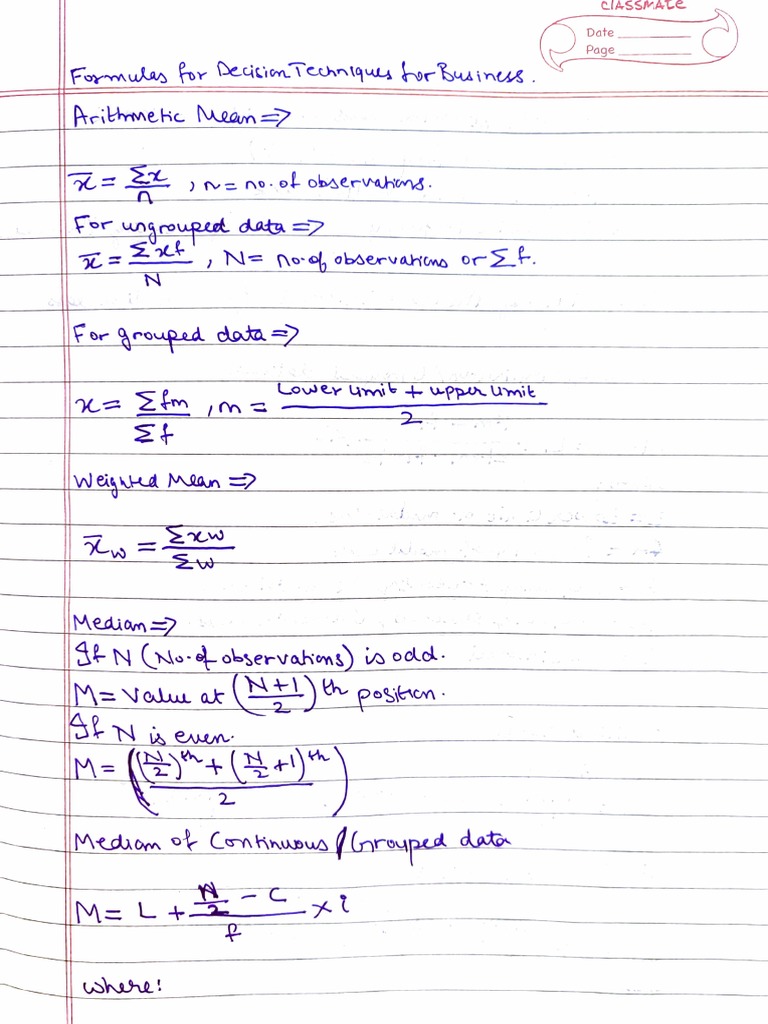 classmate
Date
Page
Formulas for Decision Techniques for Business.
Arithmetic Mean ⇒
x̄ = Σx/n , n = no. of observations.
For ungrouped data ⇒
x̄ = Σxf/N , N = no. of observations or Σf.
For grouped data ⇒
x = Σfm/Σf , m = (Lower limit + upper limit)/2
Weighted Mean ⇒
x̄w = Σxw/Σw
Median ⇒
If N (No. of observations) is odd.
M = Value at (N+1/2)th position.
If N is even.
M = ((N/2)th + (N/2 + 1)th / 2)
Median of Continuous / Grouped data
M = L + (N/2 − C)/f × i
where: